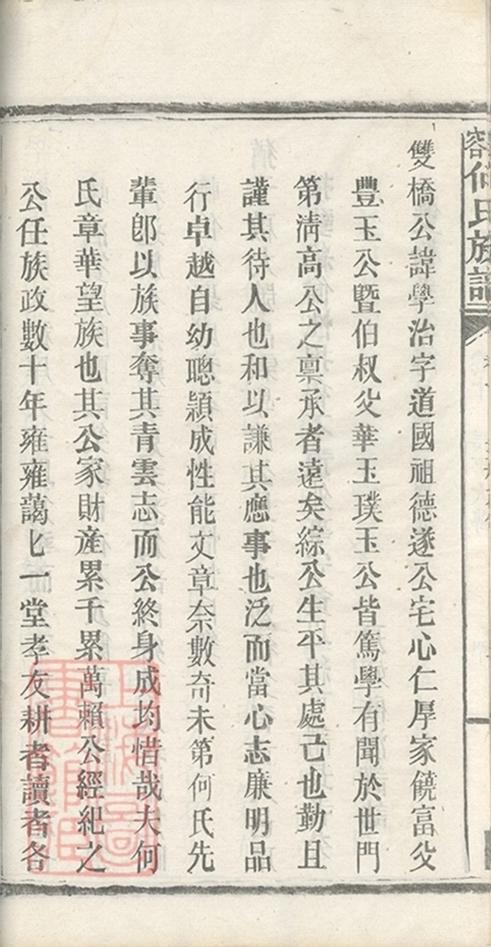 雙橋公諱學治字道國祖德遂公宅心仁厚家饒富父
豐玉公暨伯叔父華玉璞玉公皆篤學有聞於世門
第清高公之禀承者遠矣綜公生平其處己也勤且
謹其待人也和以謙其應事也泛而當心志廉明品
行卓越自幼聰頴成性能文章奈數奇未第何氏先
輩郎以族事奪其青雲志而公終身成均惜哉夫何
氏章華望族也其公家財産累千累萬賴公經紀之
公任族政數十年雍雍藹匕一堂孝友耕者讀者各
何氏族譜